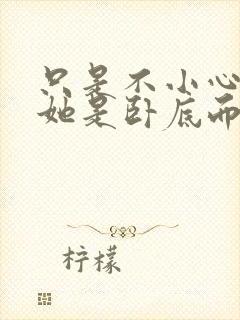 只是不小心
她是卧底而
柠檬